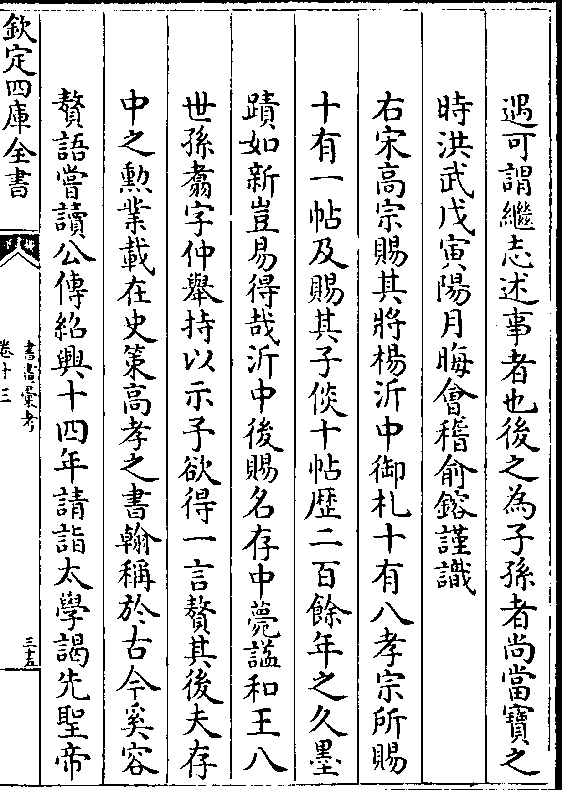 遇可謂繼志述事者也後之為子孫者尚當寶之
時洪武戊寅陽月晦會稽俞鎔謹識
右宋高宗賜其將楊沂中御札十有八孝宗所賜
十有一帖及賜其子倓十帖歴二百餘年之久墨
蹟如新豈易得哉沂中後賜名存中薨諡和王八
世孫翥字仲舉持以示予欲得一言贅其後夫存
中之勲業載在史策高孝之書翰稱於古今奚容
贅語嘗讀公傳紹興十四年請詣太學謁先聖帝
欽定四庫全書
書畫彙考
卷十三
三十五